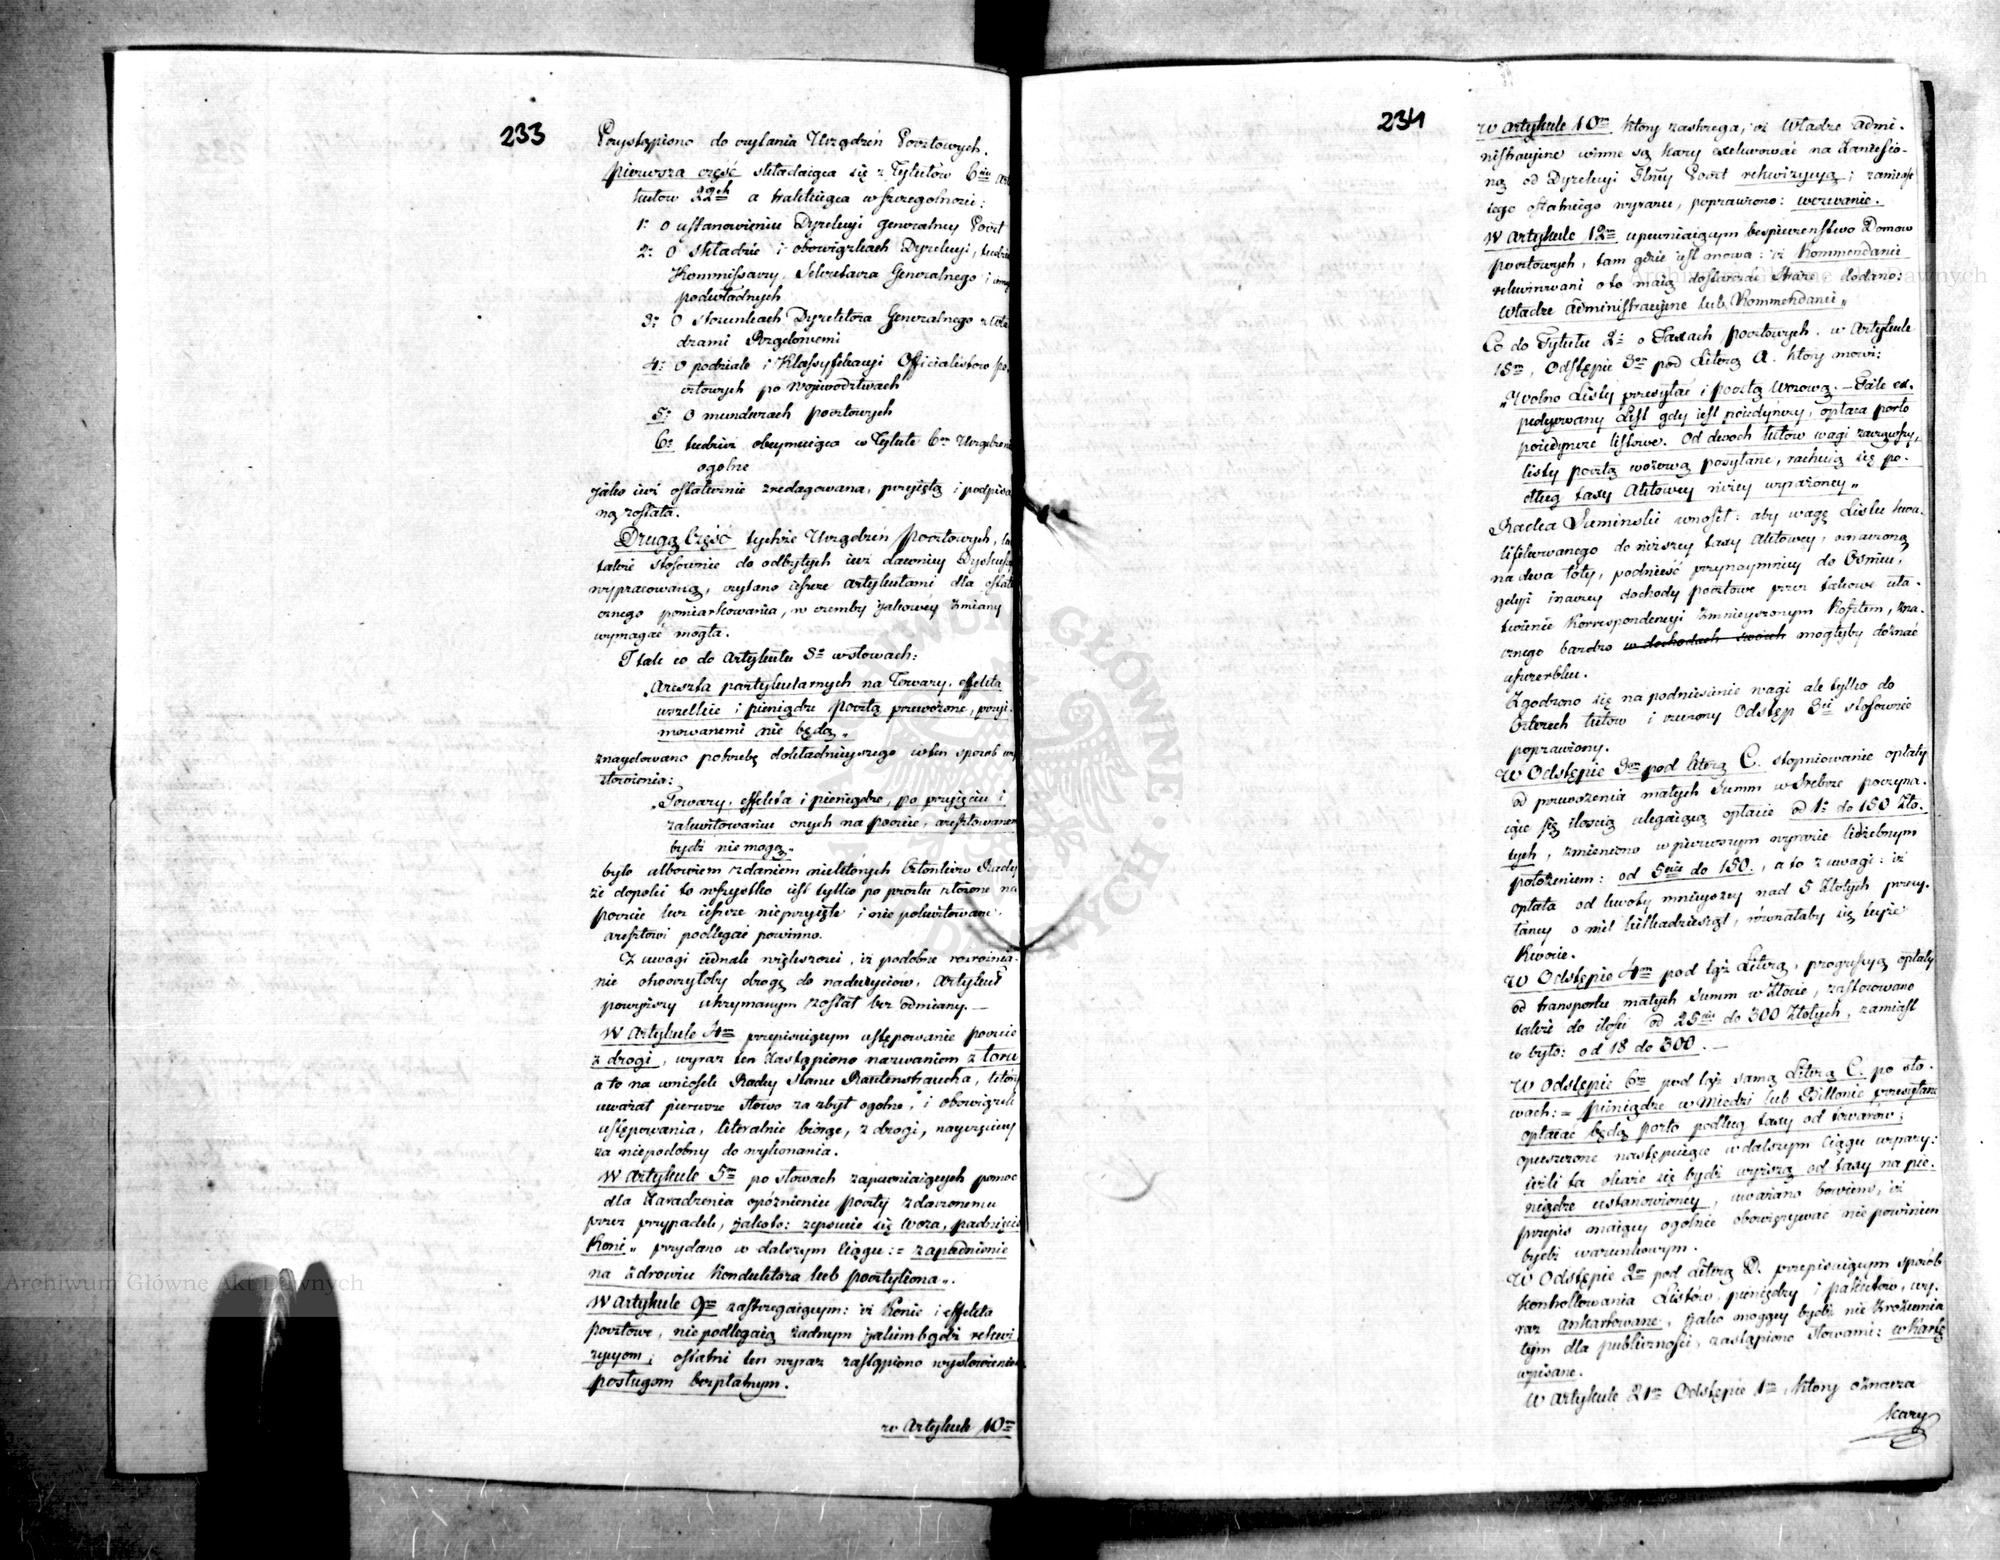 233
Przystąpiono do czytania Urządzeń Pocztowych.
pierwsza część składaiąca się z Tytułów 6ciu Ar
tułow 22ch a traktuiąca w szczegolności:
1: o ustanowieniu Dyrekcyi generalney Poczt
2: O składzie i obowiązkach Dyrekcyi, tudzież
Kommissarzy, Sekretarza Generalnego i innych
podwładnych
3: O stosunkach Dyrektora Generalnego z Wła
dzami Rządowemi
4: O podziale i Klassyfikacyi Officialistow po
cztowych po Wojewodztwach
5: O mundurach pocztowych
6: tudzież obeymuiąca w Tytule 6m Urządzenia
ogolne
jako iuż ostatecznie zredagowana, przyiętą i podpisa
ną została.
Drugą Część tychże Urządzeń pocztowych,
także stosownie do odbytych iuż dawniey Dyskussyi
wypracowaną, czytano ieszcze artykułami dla ostat
cznego pomiarkowania, w czemby jakowey zmiany
wymagać mogła.
I tak co do Artykułu 3o w słowach:
„Areszta partykularnych na Towary, effekta
wszelkie i pieniądze pocztą przewożone, przyi-
mowanemi nie będą„
znaydowano potrzebę dokładnieyszego w ten sposób wy
słowienia:
„Towary, effekta i pieniądze, po przyięciu i
zakwitowaniu onych na poczcie, aresztowanemi
bydź nie mogą„
było albowiem zdaniem niektórych Członków Rady
że dopóki to wszystko iest tylko po prostu złożone na
poczcie lecz ieszcze nieprzyięte i nie pokwitowane
aresztowi podlegać powinno.
Z uwagi iednak większości, iż podobne rozróżnia-
nie otworzyłoby drogę do nadużyciow, Artykuł
powyższy utrzymanym został bez odmiany.—
W Artykule 4m przepisuiącym ustępowanie poczcie
z drogi, wyraz ten zastąpiono nazwaniem z toru
a to na wniosek Radcy Stanu Rautenstraucha, który
uważał pierwsze słowo za zbyt ogolne, i obowiązek
ustępowania, literalnie biorąc, z drogi, nayczęściey
za niepodobny do wykonania.
W Artykule 5m po słowach zapewniaiących pomoc
dla zaradzenia opóźnieniu poczty zdarzonemu
przez przypadek, jakoto: zepsucie się woza, padnięcie
Koni„ przydano w dalszym ciągu:= zapadnienie
na zdrowiu Konduktora lub pocztyliona„.
W Artykule 9m zastrzegaiącym: iż Konie i effekta
pocztowe, niepodlegaią żadnym jakimbądź rekwi
zycyom; ostatni ten wyraz zastąpiono wysłowieniem
posługom bezpłatnym.
w Artykule 10m
234
w Artykule 10m który zastrzega, iż Władze admi-
nistracyine winne są kary exekwować na zaniesio-
ną od Dyrekcyi Glney Poczt rekwizycyą; zamiast
tego ostatniego wyrazu, poprawiono: wezwanie.
W Artykule 12m upewniaiącym bespieczeństwo Domow
pocztowych, tam gdzie iest mowa: iż Kommendanci
rekwirowani o to maią dostarczać straże dodano:
Władze administracyine lub Kommendanci„
Co do Tytułu 2o o Taxach pocztowych, w Artykule
15m, Odstępie 3m pod Literą A. który mowi:
„Wolno Listy przesyłać i pocztą wozową.—Taki ex-
pedyowany List gdy iest poiedyńczy, opłaca porto
poiedyncze listowe. Od dwoch łutow wagi zacząwszy,
listy pocztą wozową posyłane, rachuią się po-
dług taxy Aktowey niżey wyrażoney„
Radca Sumiński wnosił: aby wagę Listu kwa-
lifikowanego do niższey taxy Aktowey, oznaczoną
na dwa łoty, podnieść przynaymniey do Ośmiu,
gdyż inaczey dochody pocztowe przez takowe uła-
twienie Korrespondencyi zmnieyszonym kosztem, zna-
cznego bardzo w dochodach swoich mogłyby doznać
uszczerbku.
Zgodzono się na podniesienie wagi ale tylko do
Czterech łutow i rzeczony Odstęp 3ci stosownie
poprawiony.
W Odstępie 3m pod literą C. stopniowanie opłaty
od przewożenia małych Summ w srebrze poczyna-
iące się ilością ulegaiącą opłacie od 1o do 150 Zło-
tych, zmieniono w pierwszym wyrazie liczebnym
położeniem: od 5ciu do 150, a to z uwagi: iż
opłata od kwoty mnieyszey nad 5 Złotych przesy-
łaney o mil kilkadziesiąt, równałaby się teyże
Kwocie.
W Odstępie 4m pod tąż Literą, progressyą opłaty
od transportu małych summ w Złocie, zastosowano
także do ilości od 25ciu do 300 Złotych, zamiast
co było: od 18 do 300.—
W Odstępie 6m pod tąż samą Literą C. po sło-
wach:= pieniądze w Miedzi lub Billonie przesyłane
opłacać będą porto podług taxy od towarów;
opuszczone następuiące w dalszym ciągu wyrazy:
ieżli ta okaże się bydź wyższą od taxy na pie-
niądze ustanowioney, uważano bowiem, iż
przepis maiący ogolnie obowięzywać nie powinien
bydź warunkowym.
W Odstępie 2m pod Literą D. przepisuiącym sposób
kontrollowania Listów, pieniędzy i pakietów, wy-
raz ankartowane, jako mogący bydź nie zrozumia
łym dla publiczności, zastąpiono słowami: w kartę
wpisane.
W Artykule 21m Odstępie 1m, który oznacza
kary
Archiwum Główne Akt Dawnych
Archiwum Główne Akt Dawnych